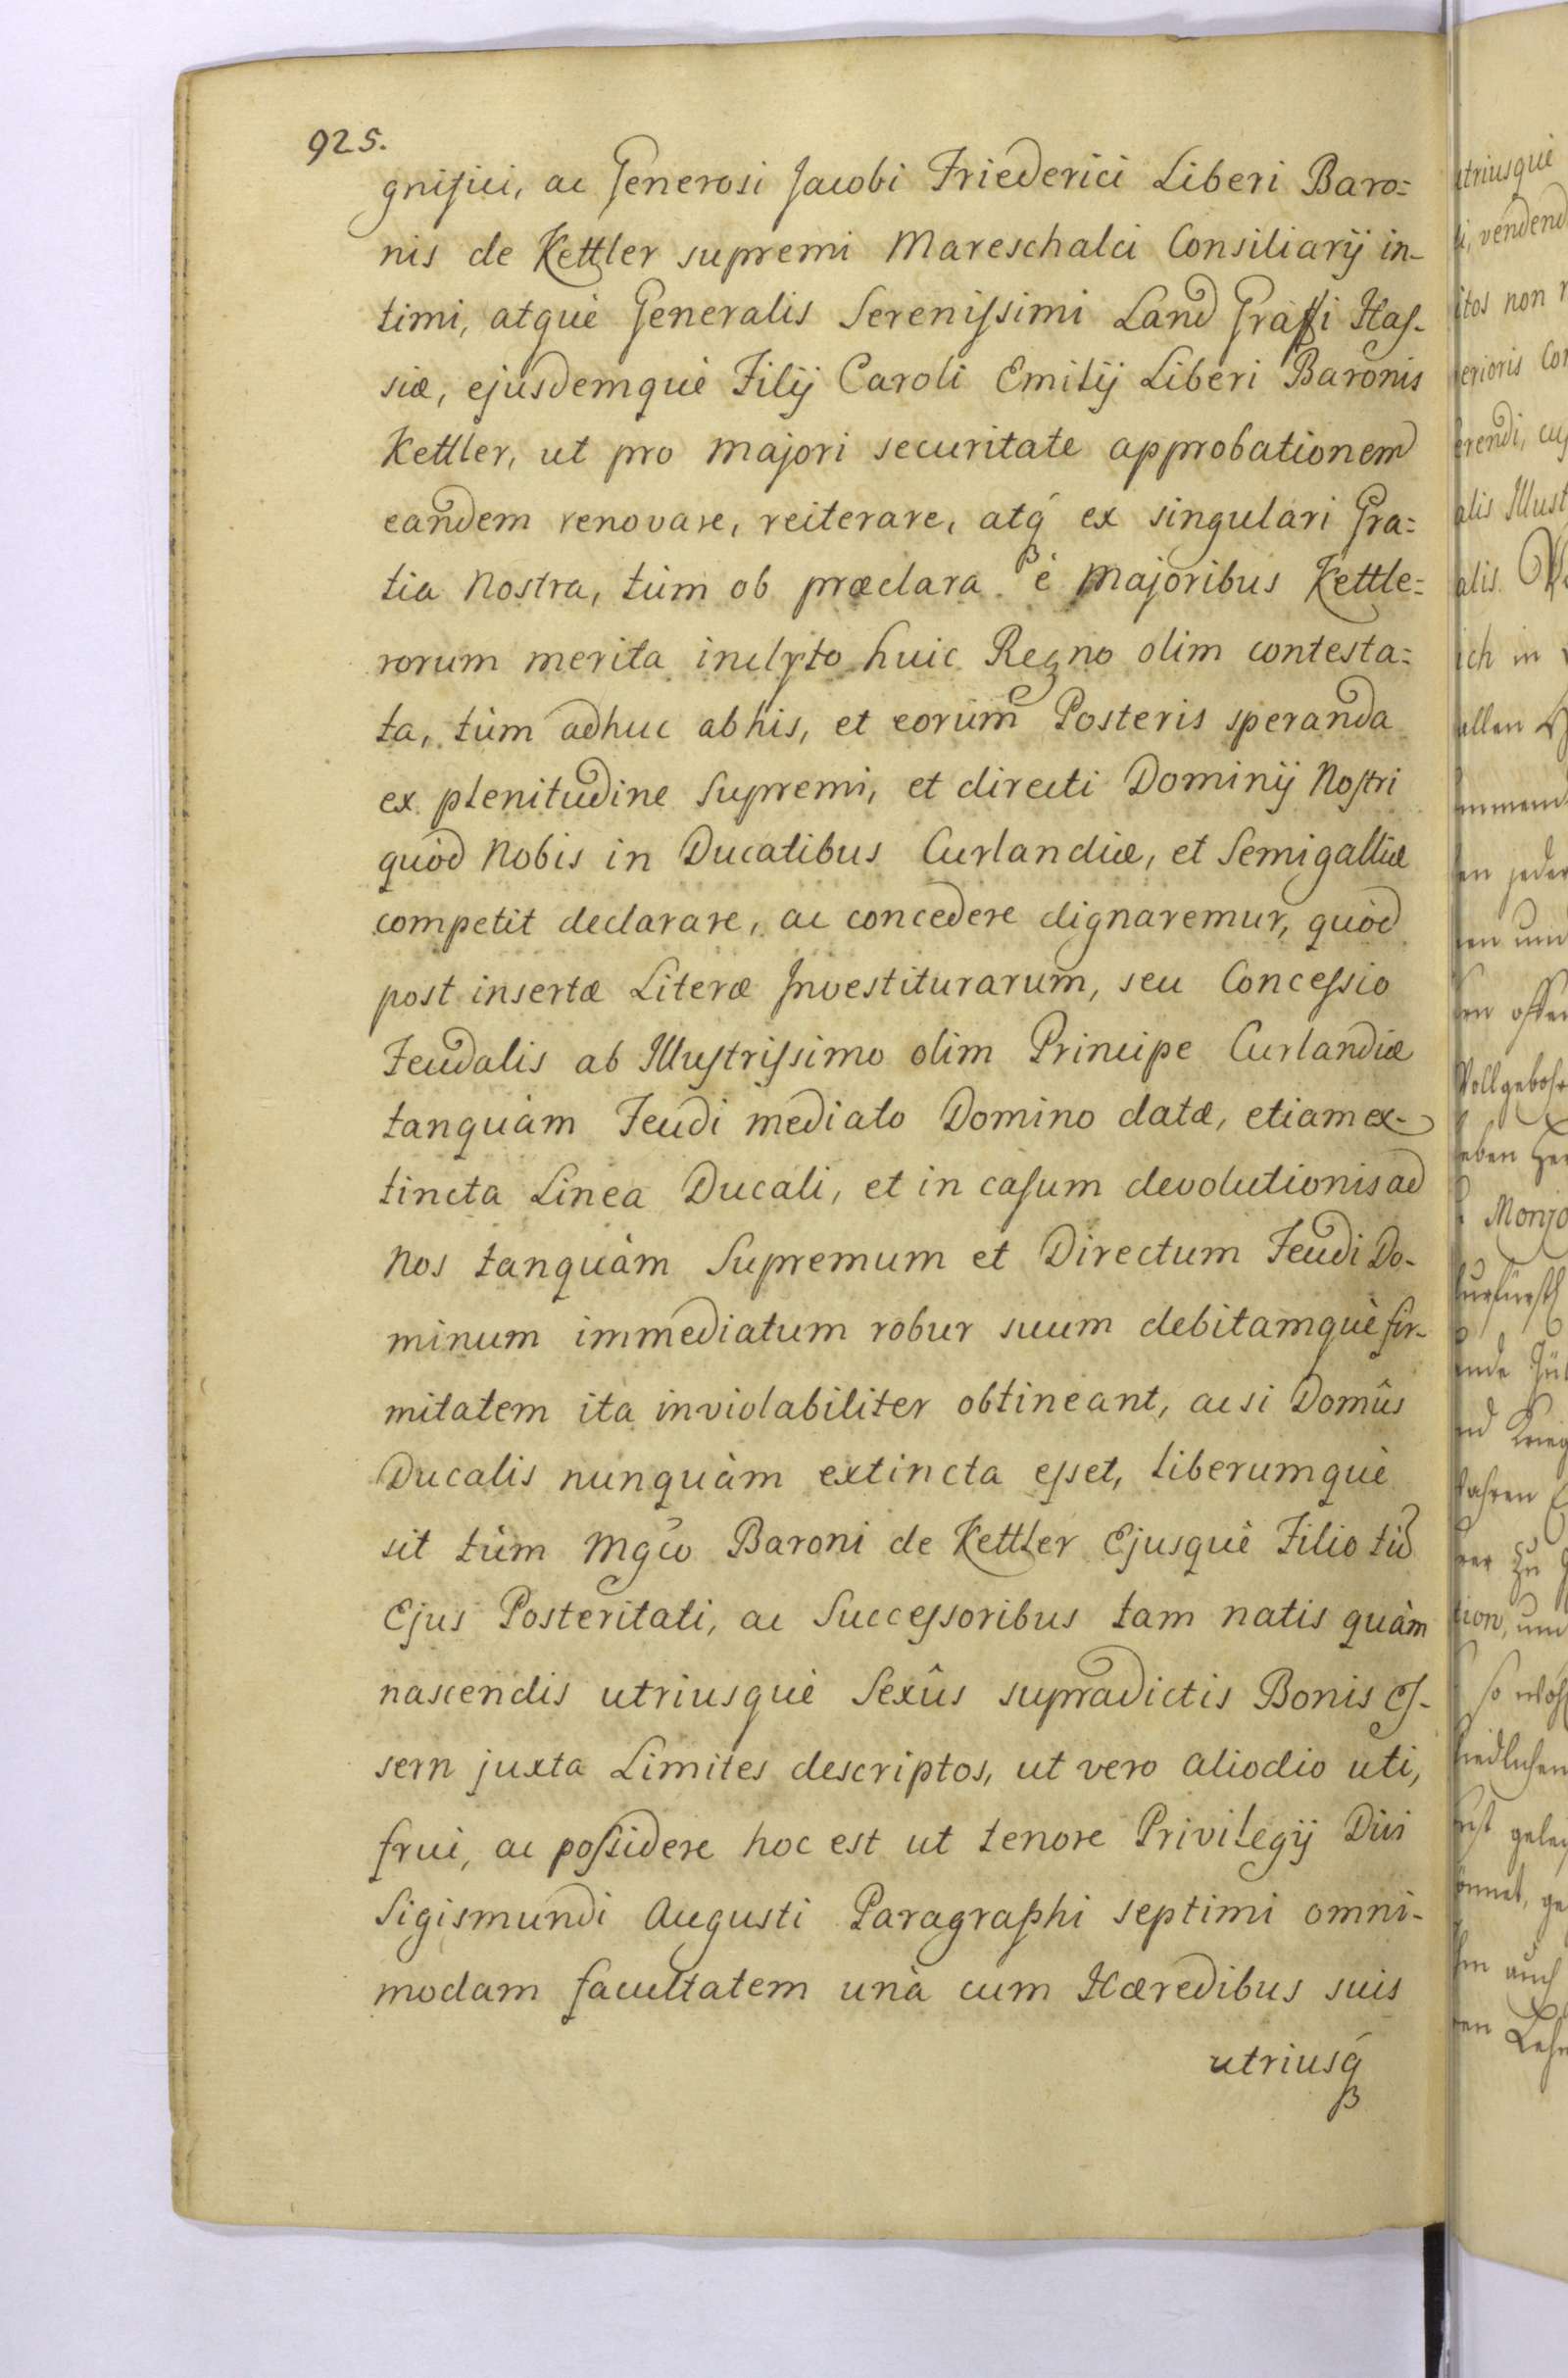 925.
gnifici, ac Generosi Jacobi Friederici Liberi Baro=
nis de Kettler supremi Mareschalci Consiliarij in-
timi, atquè Generalis Serenissimi Land Graffi Has-
siæ, ejusdemquè Filij Caroli Emilij Liberi Baronis
Kettler, ut pro majori securitate approbationem
eandem renovare, reiterare, atq́ ex singulari Gra=
tia Nostra, tùm ob præclara è Majoribus Kettle=
rorum merita inclyto huic Regno olim contesta=
ta, tùm adhuc ab his, et eorum Posteris speranda
ex plenitudine Supremi, et directi Dominij Nostri
quòd Nobis in Ducatibus Curlandiæ, et Semigalliæ
competit declarare, ac concedere dignaremur, quòd
post insertæ Literæ Investiturarum, seu Concessio
Feudalis ab Illustrissimo olim Principe Curlandiæ
tanquàm Feudi mediato Domino datæ, etiam ex-
tincta Linea Ducali, et in casum devolutionis ad
Nos tanquàm Supremum et Directum Feudi Do-
minum immediatum robur suum debitamquè fir-
mitatem ita inviolabiliter obtineant, ac si Domûs
Ducalis nunquàm extincta esset, liberumquè
sit tùm Mgco Baroni de Kettler Ejusquè Filio tũ
Ejus Posteritati, ac Successoribus tam natis quàm
nascendis utriusquè Sexûs supradictis Bonis Es-
sern juxta Limites descriptos, ut vero aliodio uti,
frui, ac possidere hoc est ut tenore Privilegij Divi
Sigismundi Augusti Paragraphi septimi omni-
modam facultatem unà cum Hæredibus suis
utriusq́
utriusquè
vendend
itos non
erioris Con
erendi, cuj
alis Illust
alis.
ich in
allen
en jeder
en und
Monjo
ion, und
auch